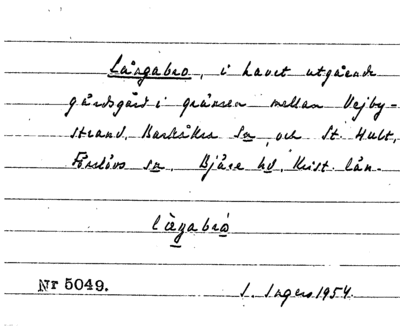 Långabro, i havet utgående
gärdsgård i gränsen mellan Vejby-
strand, Barkåkra sn och St. Hult,
Förslövs sn. Bjäre hd, Krist. län.
Nr 5049.
I. Ingers 1954.